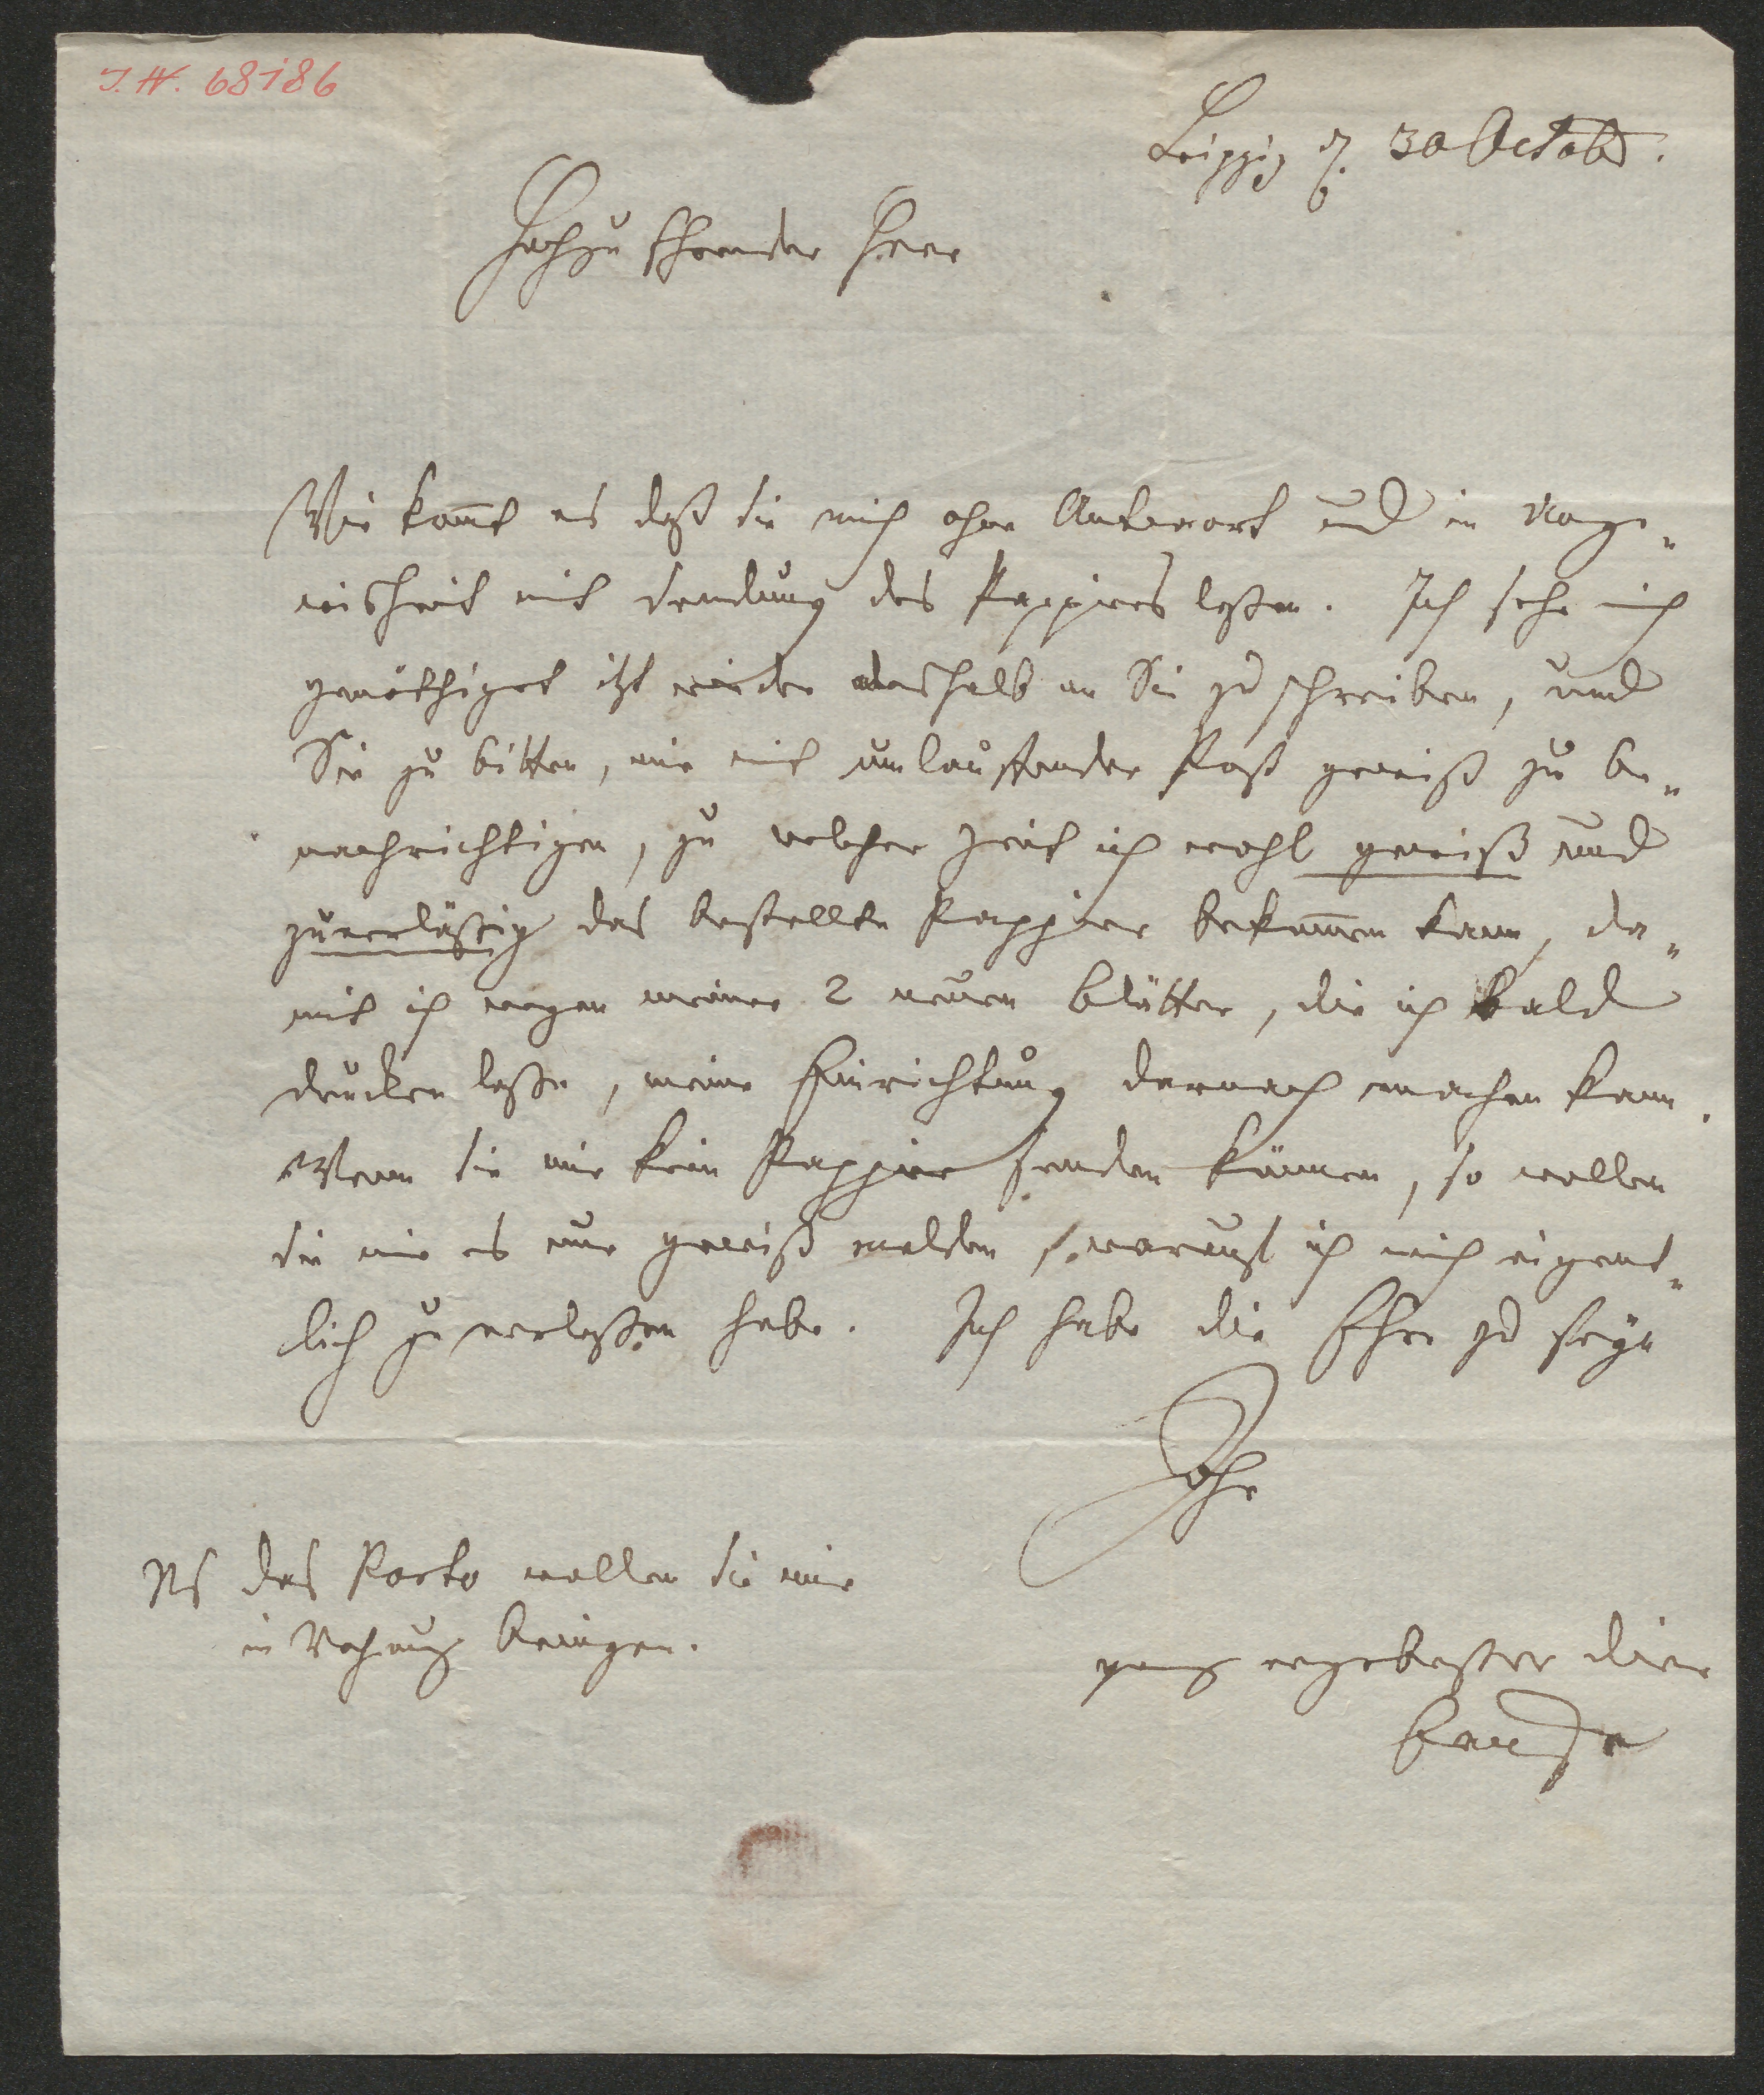 I.N. 68186
Leipzig d. 30 Octobr.
Hochzu Ehrender Herr
Wie kom̄t es daß Sie mich ohne Antwort und in Unge„
wisheit mit Sendung des Pappiers laßen. Ich sehe mich
genöthiget itzt wieder deshalb an Sie zu schreiben, und
Sie zu bitten, mir mit umlauffender Post gewiß zu be„
nachrichtigen, zu welcher Zeit ich wohl gewiß und
zuverläßig das bestellte Pappier bekom̄en kann, da„
mit ich wegen meiner 2 neuen Blätter, die ich bald
drucken laße, meine Einrichtung darnach machen kann.
Wenn Sie mir kein Pappier senden können, so wollen
Sie mir es nur gewiß melden, worauf ich mich eigent„
lich zu verlaßen habe. Ich habe die Ehre zu seyn
Ihr
NS das Porto wollen Sie mir
in Rechnung bringen.
ganz ergebenster Diener
Bause